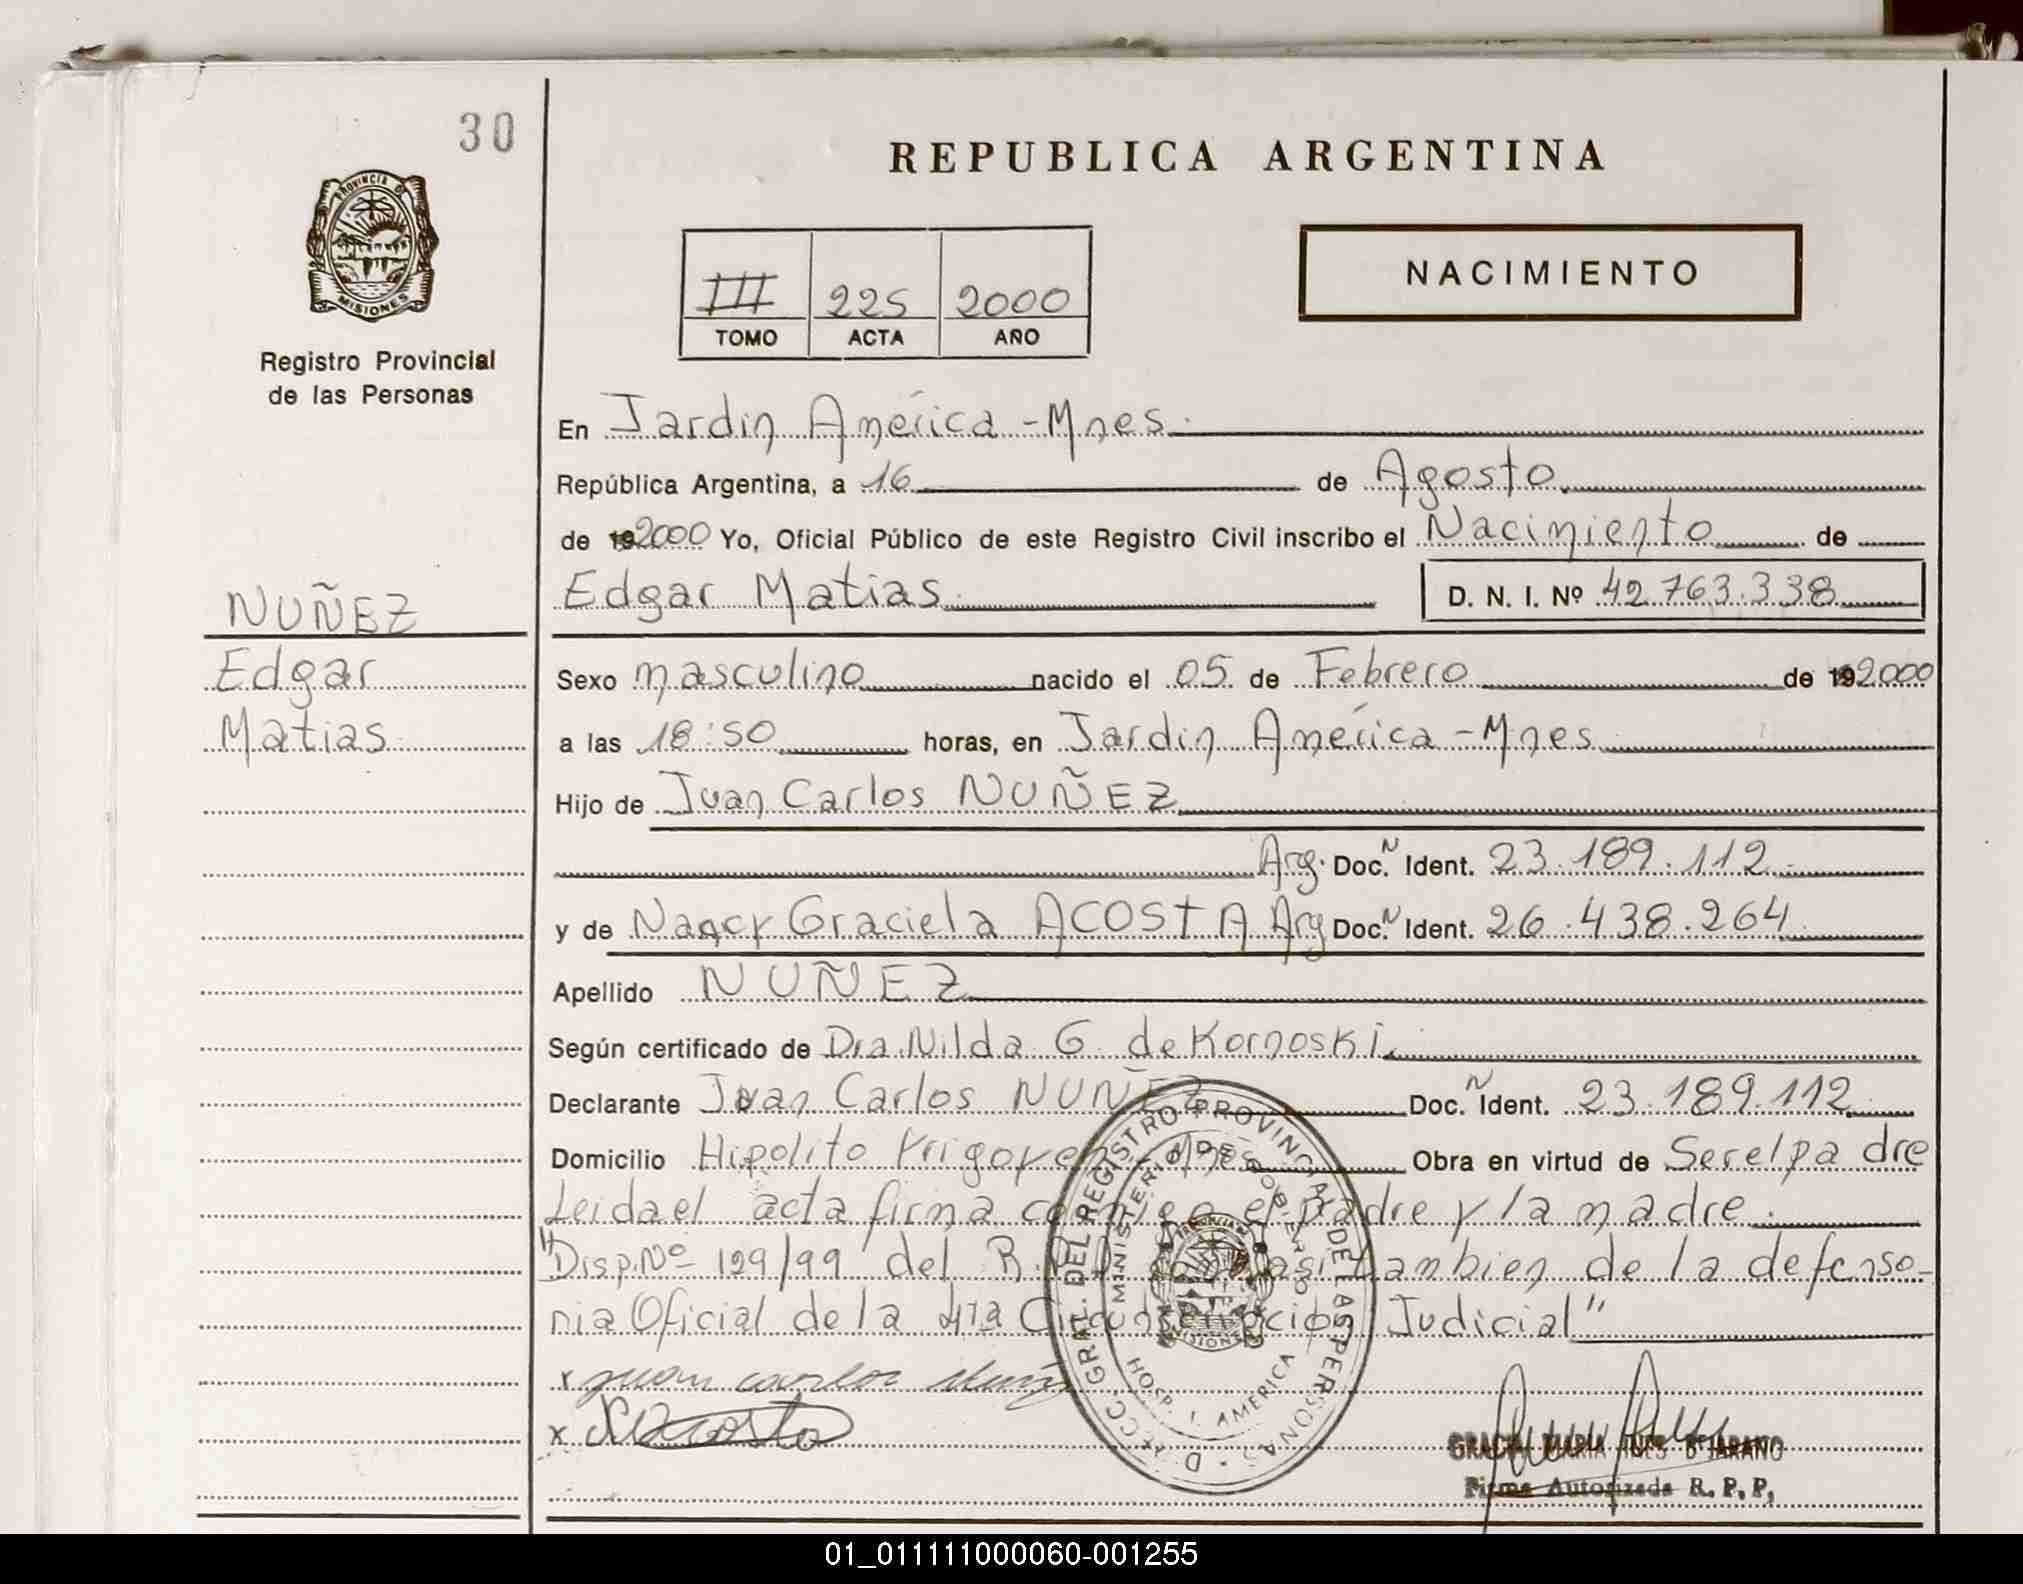 30
REPUBLICA ARGENTINA
PROVINCIA D
MISIONES
III 225 2000
TOMO ACTA AÑO
NACIMIENTO
Registro Provincial
de las Personas
En Jardin América - Mnes.
República Argentina, a 16 de Agosto
de 192000 Yo, Oficial Público de este Registro Civil inscribo el Nacimiento de
NUÑEZ
Edgar Matias D. N. I. Nº 42.763.338
Edgar
Sexo masculino nacido el 05 de Febrero de 192000
Matias
a las 18:50 horas, en Jardin América - Mnes
Hijo de Juan Carlos NUÑEZ
Arg. Doc. N Ident. 23.189.112
y de Nancy Graciela ACOSTA Arg Doc. N Ident. 26.438.264
Apellido NUÑEZ
Según certificado de Dra. Nilda G. de Kornoski
Declarante Juan Carlos NUÑEZ Doc. N Ident. 23.189.112
Domicilio Hipolito Yrigoyen - Mnes Obra en virtud de Ser el padre
Leida el acta firma conmigo el Padre y la madre.
"Disp. Nº 129/99 del R. asi tambien de la defenso-
ria Oficial de la 4ta Circunscripcion Judicial"
x Juan carlos Nuñ
x Acosta
GRAL. DEL REGISTRO PROVINCIAL DE LAS PERSONAS
MINISTERIO DE GOBIERNO
MISIONES
HOSP. J. AMERICA
GRACIA MARIA INES B JARANO
Firma Autorizada R. P. P.
01_011111000060-001255